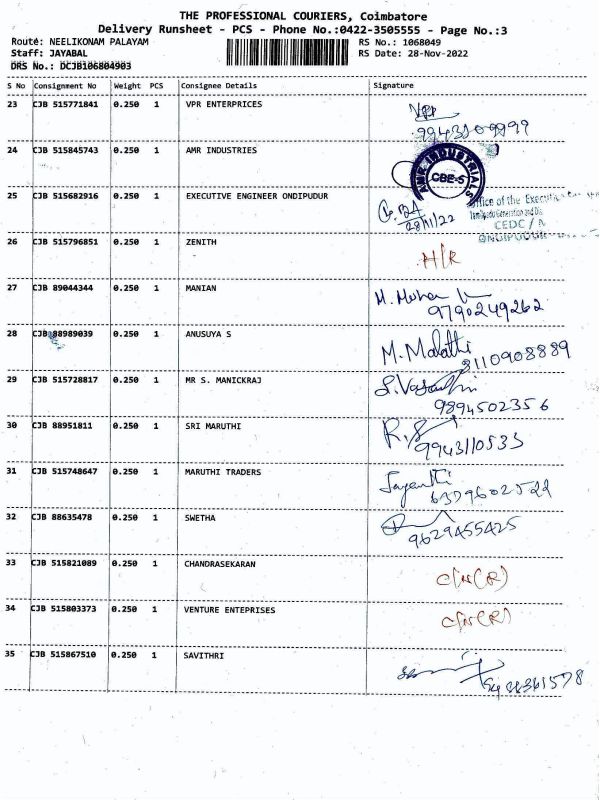 THE PROFESSIONAL COURIERS, Coimbatore
Delivery Runsheet - PCS - Phone No.:0422-3505555 - Page No.:3
Route: NEELIKONAM PALAYAM
RS No.: 1068049
Staff: JAYABAL
RS Date: 28-Nov-2022
DRS No.: DCJB106804903
S No Consignment No Weight PCS Consignee Details Signature
23 CJB 515771841 0.250 1 VPR ENTERPRICES VPR
9943109999
24 CJB 515845743 0.250 1 AMR INDUSTRIES AMR INDUSTRIALS CBE-5
25 CJB 515682916 0.250 1 EXECUTIVE ENGINEER ONDIPUDUR
28/11/22
Office of the
CEDC /
26 CJB 515796851 0.250 1 ZENITH H/R
27 CJB 89044344 0.250 1 MANIAN M. Mohan
9790249262
28 CJB 88989039 0.250 1 ANUSUYA S M. Malathi
8110908889
29 CJB 515728817 0.250 1 MR S. MANICKRAJ S. Vasanthi
9894502356
30 CJB 88951811 0.250 1 SRI MARUTHI
9943110533
31 CJB 515748647 0.250 1 MARUTHI TRADERS Jayanthi
6379602522
32 CJB 88635478 0.250 1 SWETHA
9629455425
33 CJB 515821089 0.250 1 CHANDRASEKARAN
34 CJB 515803373 0.250 1 VENTURE ENTEPRISES
35 CJB 515867510 0.250 1 SAVITHRI